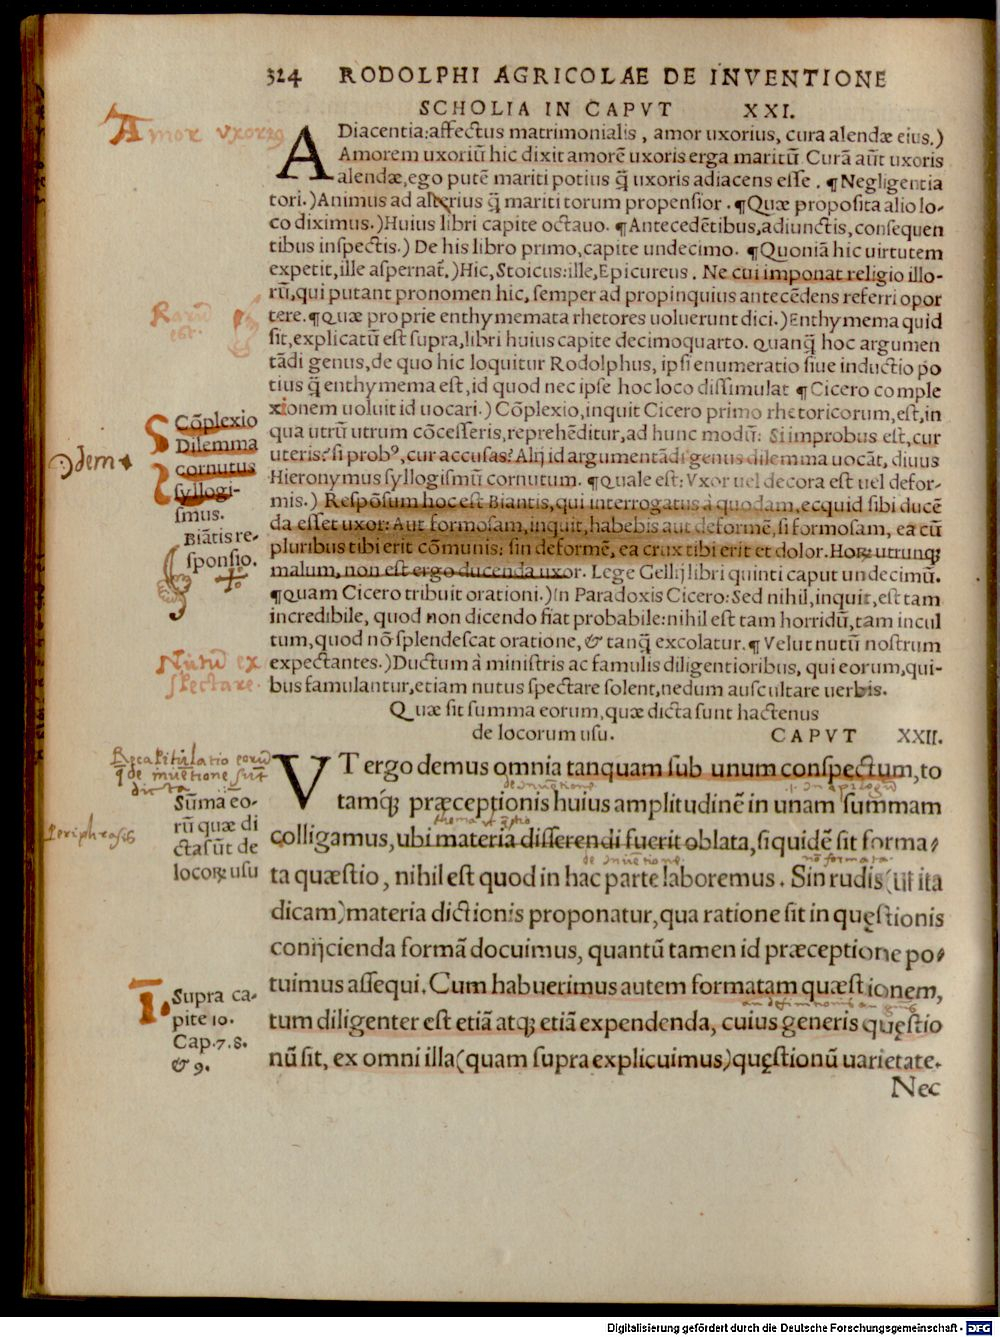 324 RODOLPHI AGRICOLAE DE INVENTIONE
SCHOLIA IN CAPVT XXI.
Amor vxori9
ADiacentia:affectus matrimonialis, amor uxorius, cura alendæ eius.)
Amorem uxoriũ hic dixit amorẽ uxoris erga maritũ. Curã aũt uxoris
alendæ,ego putẽ mariti potius q̃ uxoris adiacens esse. ¶Negligentia
tori.)Animus ad alterius q̃ mariti torum propensior. ¶Quæ proposita alio lo-
co diximus.)Huius libri capite octauo. ¶Antecedẽtibus,adiunctis,consequen
tibus inspectis.) De his libro primo,capite undecimo. ¶Quoniã hic uirtutem
expetit,ille aspernat̃.)Hic,Stoicus:ille,Epicureus. Ne cui imponat religio illo-
rũ,qui putant pronomen hic, semper ad propinquius antecẽdens referri opor
Rarũ
est.
tere.¶Quæ proprie enthymemata rhetores uoluerunt dici.)Enthymema quid
sit,explicatũ est supra,libri huius capite decimoquarto. Quanq̃ hoc argumen
tãdi genus,de quo hic loquitur Rodolphus, ipsi enumeratio siue inductio po
tius q̃ enthymema est,id quod nec ipse hoc loco dissimulat ¶Cicero comple
xionem uoluit id uocari.) Cõplexio,inquit Cicero primo rhetoricorum,est,in
qua utrũ utrum cõcesseris,reprehẽditur,ad hunc modũ: Si improbus est,cur
uteris?si prob⁹,cur accusas?Alij id argumentãdi genus dilemma uocãt, diuus
Hieronymus syllogismũ cornutum. ¶Quale est: Vxor uel decora est uel defor-
mis.) Respõsum hoc est Biantis,qui interrogatus à quodam,ecquid sibi ducẽ
da esset uxor: Aut formosam,inquit,habebis aut deformẽ,si formosam, ea cũ
pluribus tibi erit cõmunis: sin deformẽ, ea crux tibi erit et dolor.Horꝝ utrunqꝫ
malum, non est ergo ducenda uxor. Lege Gellij libri quinti caput undecimũ.
¶Quam Cicero tribuit orationi.)In Paradoxis Cicero:Sed nihil,inquit,est tam
incredibile, quod non dicendo fiat probabile:nihil est tam horridũ,tam incul
tum,quod nõ splendescat oratione,& tanq̃ excolatur.¶Velut nutũ nostrum
expectantes.)Ductum à ministris ac famulis diligentioribus, qui eorum,qui-
bus famulantur,etiam nutus spectare solent,nedum auscultare uerbis.
Cõplexio
Dilemma
Idem
cornutus
syllogi-
smus.
Biãtis re-
sponsio.
Nutũ ex
spectare.
Quæ sit summa eorum,quæ dicta sunt hactenus
de locorum usu. CAPVT XXII.
Recapitulatio eorũ
q̃ de inuẽtione sũt
dicta
VT ergo demus omnia tanquam sub unum conspectum,to
de inuẽtione
tamqꝫ præceptionis huius amplitudinẽ in unam summam
colligamus,ubi materia disserendi fuerit oblata,siquidẽ sit forma-
de inuẽtione. nõ formata.
ta quæstio, nihil est quod in hac parte laboremus. Sin rudis(ut ita
dicam)materia dictionis proponatur,qua ratione sit in quęstionis
conijcienda formã docuimus, quantũ tamen id præceptione po-
tuimus assequi. Cum habuerimus autem formatam quæstionem,
tum diligenter est etiã atqꝫ etiã expendenda, cuius generis quęstio
nũ sit, ex omni illa(quam supra explicuimus)quęstionũ uarietate.
Nec
Sũma eo-
rũ quæ di
cta sũt de
locorꝝ usu
Periphrasis
Supra ca-
pite 10.
Cap.7.8.
& 9.
Digitalisierung gefördert durch die Deutsche Forschungsgemeinschaft - DFG